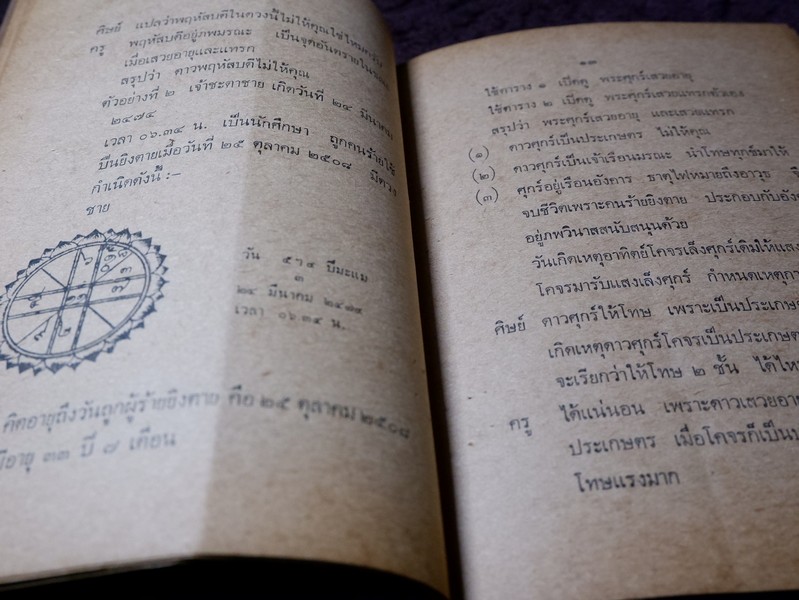 ศิษย์ แปลว่าพฤหัสบดีในดวงนี้ไม่ให้คุณใช่ไหมครับ
ครู พฤหัสบดีอยู่ภพมรณะ เป็นจุดอันตราย
เมื่อเสวยอายุและแทรก
สรุปว่า ดาวพฤหัสบดีไม่ให้คุณ
ตัวอย่างที่ ๒ เจ้าชะตาชาย เกิดวันที่ ๒๔ มีนาคม
๒๔๗๔
เวลา ๐๖.๓๔ น. เป็นนักศึกษา ถูกคนร้ายใช้
ปืนยิงตายเมื่อวันที่ ๒๕ ตุลาคม ๒๕๐๘ มีดวง
กำเนิดดังนี้ :-
ชาย
วัน ๕ ๆ ๔ ปีมะแม
๓
๒๔ มีนาคม ๒๔๗๔
เวลา ๐๖.๓๔ น.
คิดอายุถึงวันถูกผู้ร้ายยิงตาย คือ ๒๕ ตุลาคม ๒๕๐๘
มีอายุ ๓๓ ปี ๗ เดือน
๑๓
ใช้ตาราง ๑ เปิดดู พระศุกร์เสวยอายุ
ใช้ตาราง ๒ เปิดดู พระศุกร์เสวยแทรกตัวเอง
สรุปว่า พระศุกร์เสวยอายุ และเสวยแทรก
(๑) ดาวศุกร์เป็นประเกษตร ไม่ให้คุณ
(๒) ดาวศุกร์เป็นเจ้าเรือนมรณะ นำโทษทุกข์มาให้
(๓) ศุกร์อยู่เรือนอังคาร ธาตุไฟหมายถึงอาวุธ
จบชีวิตเพราะคนร้ายยิงตาย ประกอบกับอัง
อยู่ภพวินาสสนับสนุนด้วย
วันเกิดเหตุอาทิตย์โคจรเล็งศุกร์เดิมให้แสง
โคจรมารับแสงเล็งศุกร์ กำหนดเหตุกา
ศิษย์ ดาวศุกร์ให้โทษ เพราะเป็นประเกษ
เกิดเหตุดาวศุกร์โคจรเป็นประเกษตร
จะเรียกว่าให้โทษ ๒ ชั้น ได้ไหม
ครู ได้แน่นอน เพราะดาวเสวยอา
ประเกษตร เมื่อโคจรก็เป็นป
โทษแรงมาก